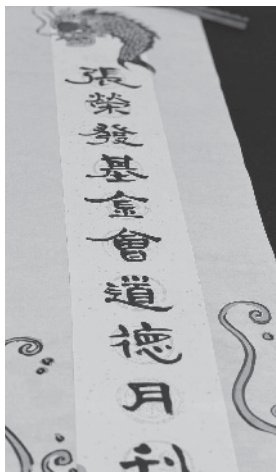 張榮發基金會道德月刊